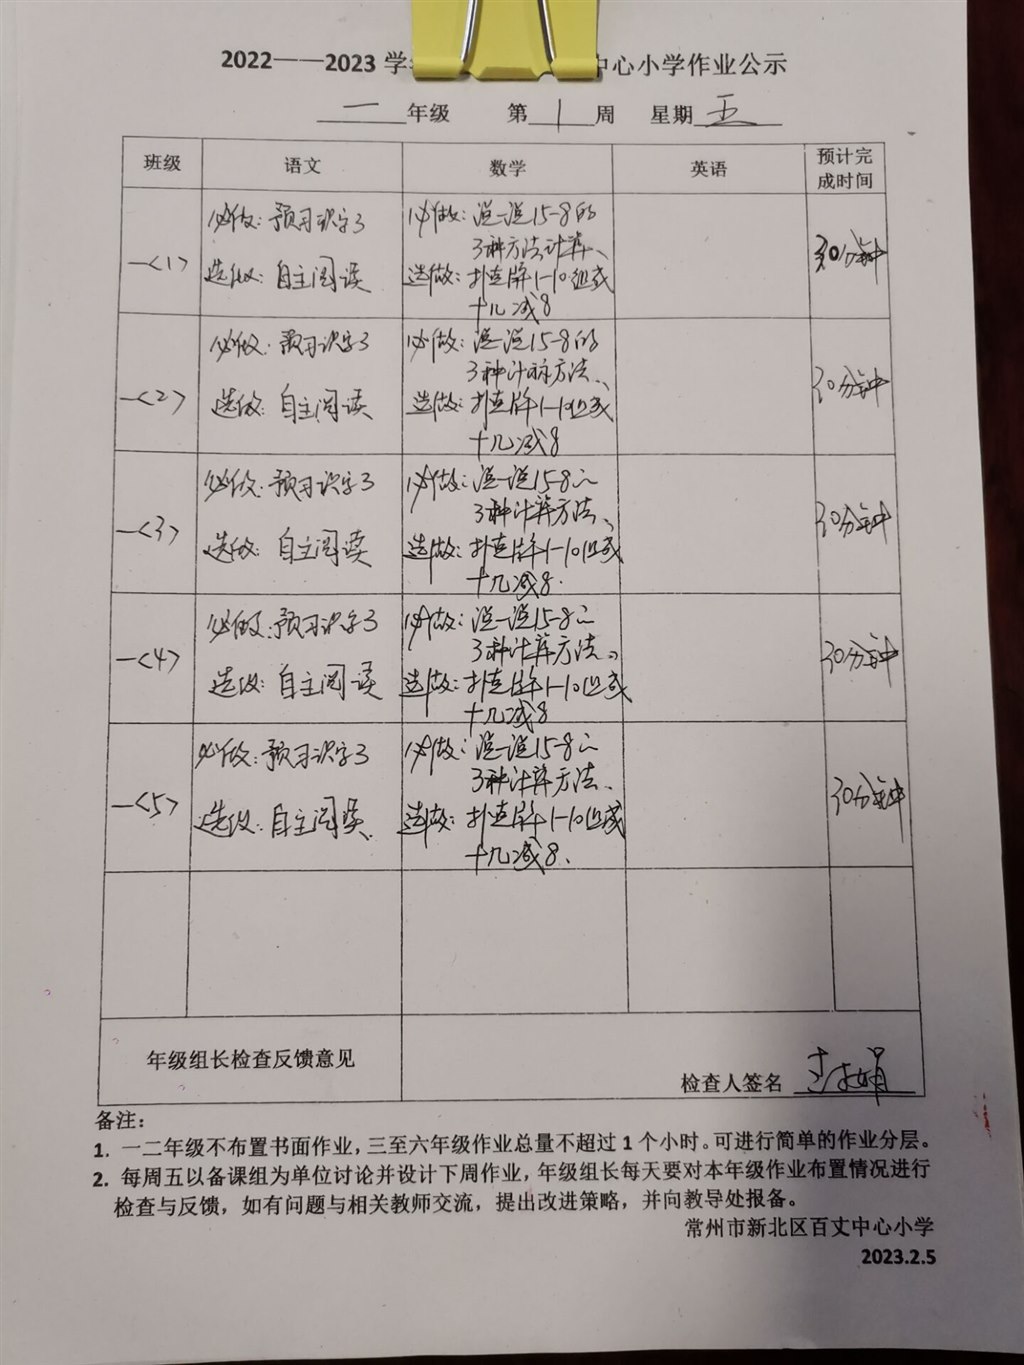 2022——2023 学 中心小学作业公示
一 年级 第 1 周 星期 五
班级 语文 数学 英语 预计完
成时间
一<1> 必做：预习识字3 必做：说一说15-8的 30分钟
3种方法计算、
选做：自主阅读 选做：扑克牌1-10组成
十几减8
一<2> 必做：预习识字3 必做：说一说15-8的 30分钟
3种计算方法、
选做：自主阅读 选做：扑克牌1-10组成
十几减8
一<3> 必做：预习识字3 必做：说一说15-8的 30分钟
3种计算方法、
选做：自主阅读 选做：扑克牌1-10组成
十几减8.
一<4> 必做：预习识字3 必做：说一说15-8的 30分钟
3种计算方法、
选做：自主阅读 选做：扑克牌1-10组成
十几减8
一<5> 必做：预习识字3 必做：说一说15-8的 30分钟
3种计算方法、
选做：自主阅读、 选做：扑克牌1-10组成
十几减8、
年级组长检查反馈意见
检查人签名
备注：
1. 一二年级不布置书面作业，三至六年级作业总量不超过 1 个小时。可进行简单的作业分层。
2. 每周五以备课组为单位讨论并设计下周作业，年级组长每天要对本年级作业布置情况进行
检查与反馈，如有问题与相关教师交流，提出改进策略，并向教导处报备。
常州市新北区百丈中心小学
2023.2.5